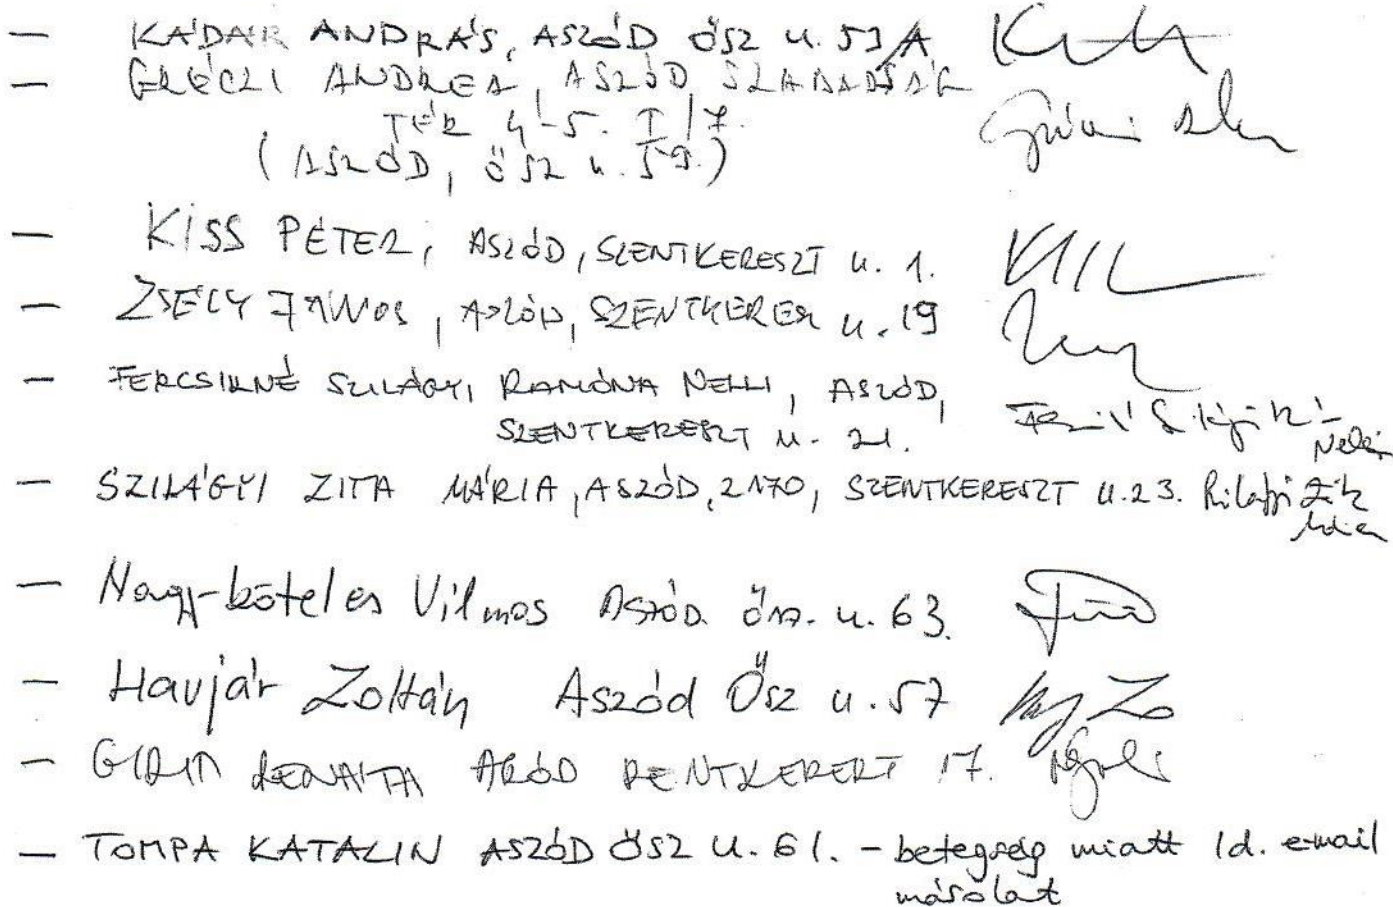 — KÁDÁR ANDRÁS, ASZÓD ŐSZ u. 53/A
— GRÉCZI ANDREA, ASZÓD, SZABADSÁG
TÉR 4-5. I/7.
(ASZÓD, ŐSZ u. 59.)
— KISS PÉTER, ASZÓD, SZENTKERESZT u. 1.
— ZSÉLY JÁNOS, ASZÓD, SZENTKERESZ u. 19
— FERCSIKNÉ SZILÁGYI RAMÓNA NELLI, ASZÓD,
SZENTKERESZT u. 21.
— SZILÁGYI ZITA MÁRIA, ASZÓD, 2170, SZENTKERESZT u. 23. Szilágyi Zita
Mária
— Nagy-köteles Vilmos ASZÓD. ősz. u. 63.
— Havjár Zoltán Aszód Ősz u. 57
— RENÁTA ASZÓD SZENTKERESZT 17.
— TOMPA KATALIN ASZÓD ŐSZ U. 61. - betegség miatt ld. email
másolat